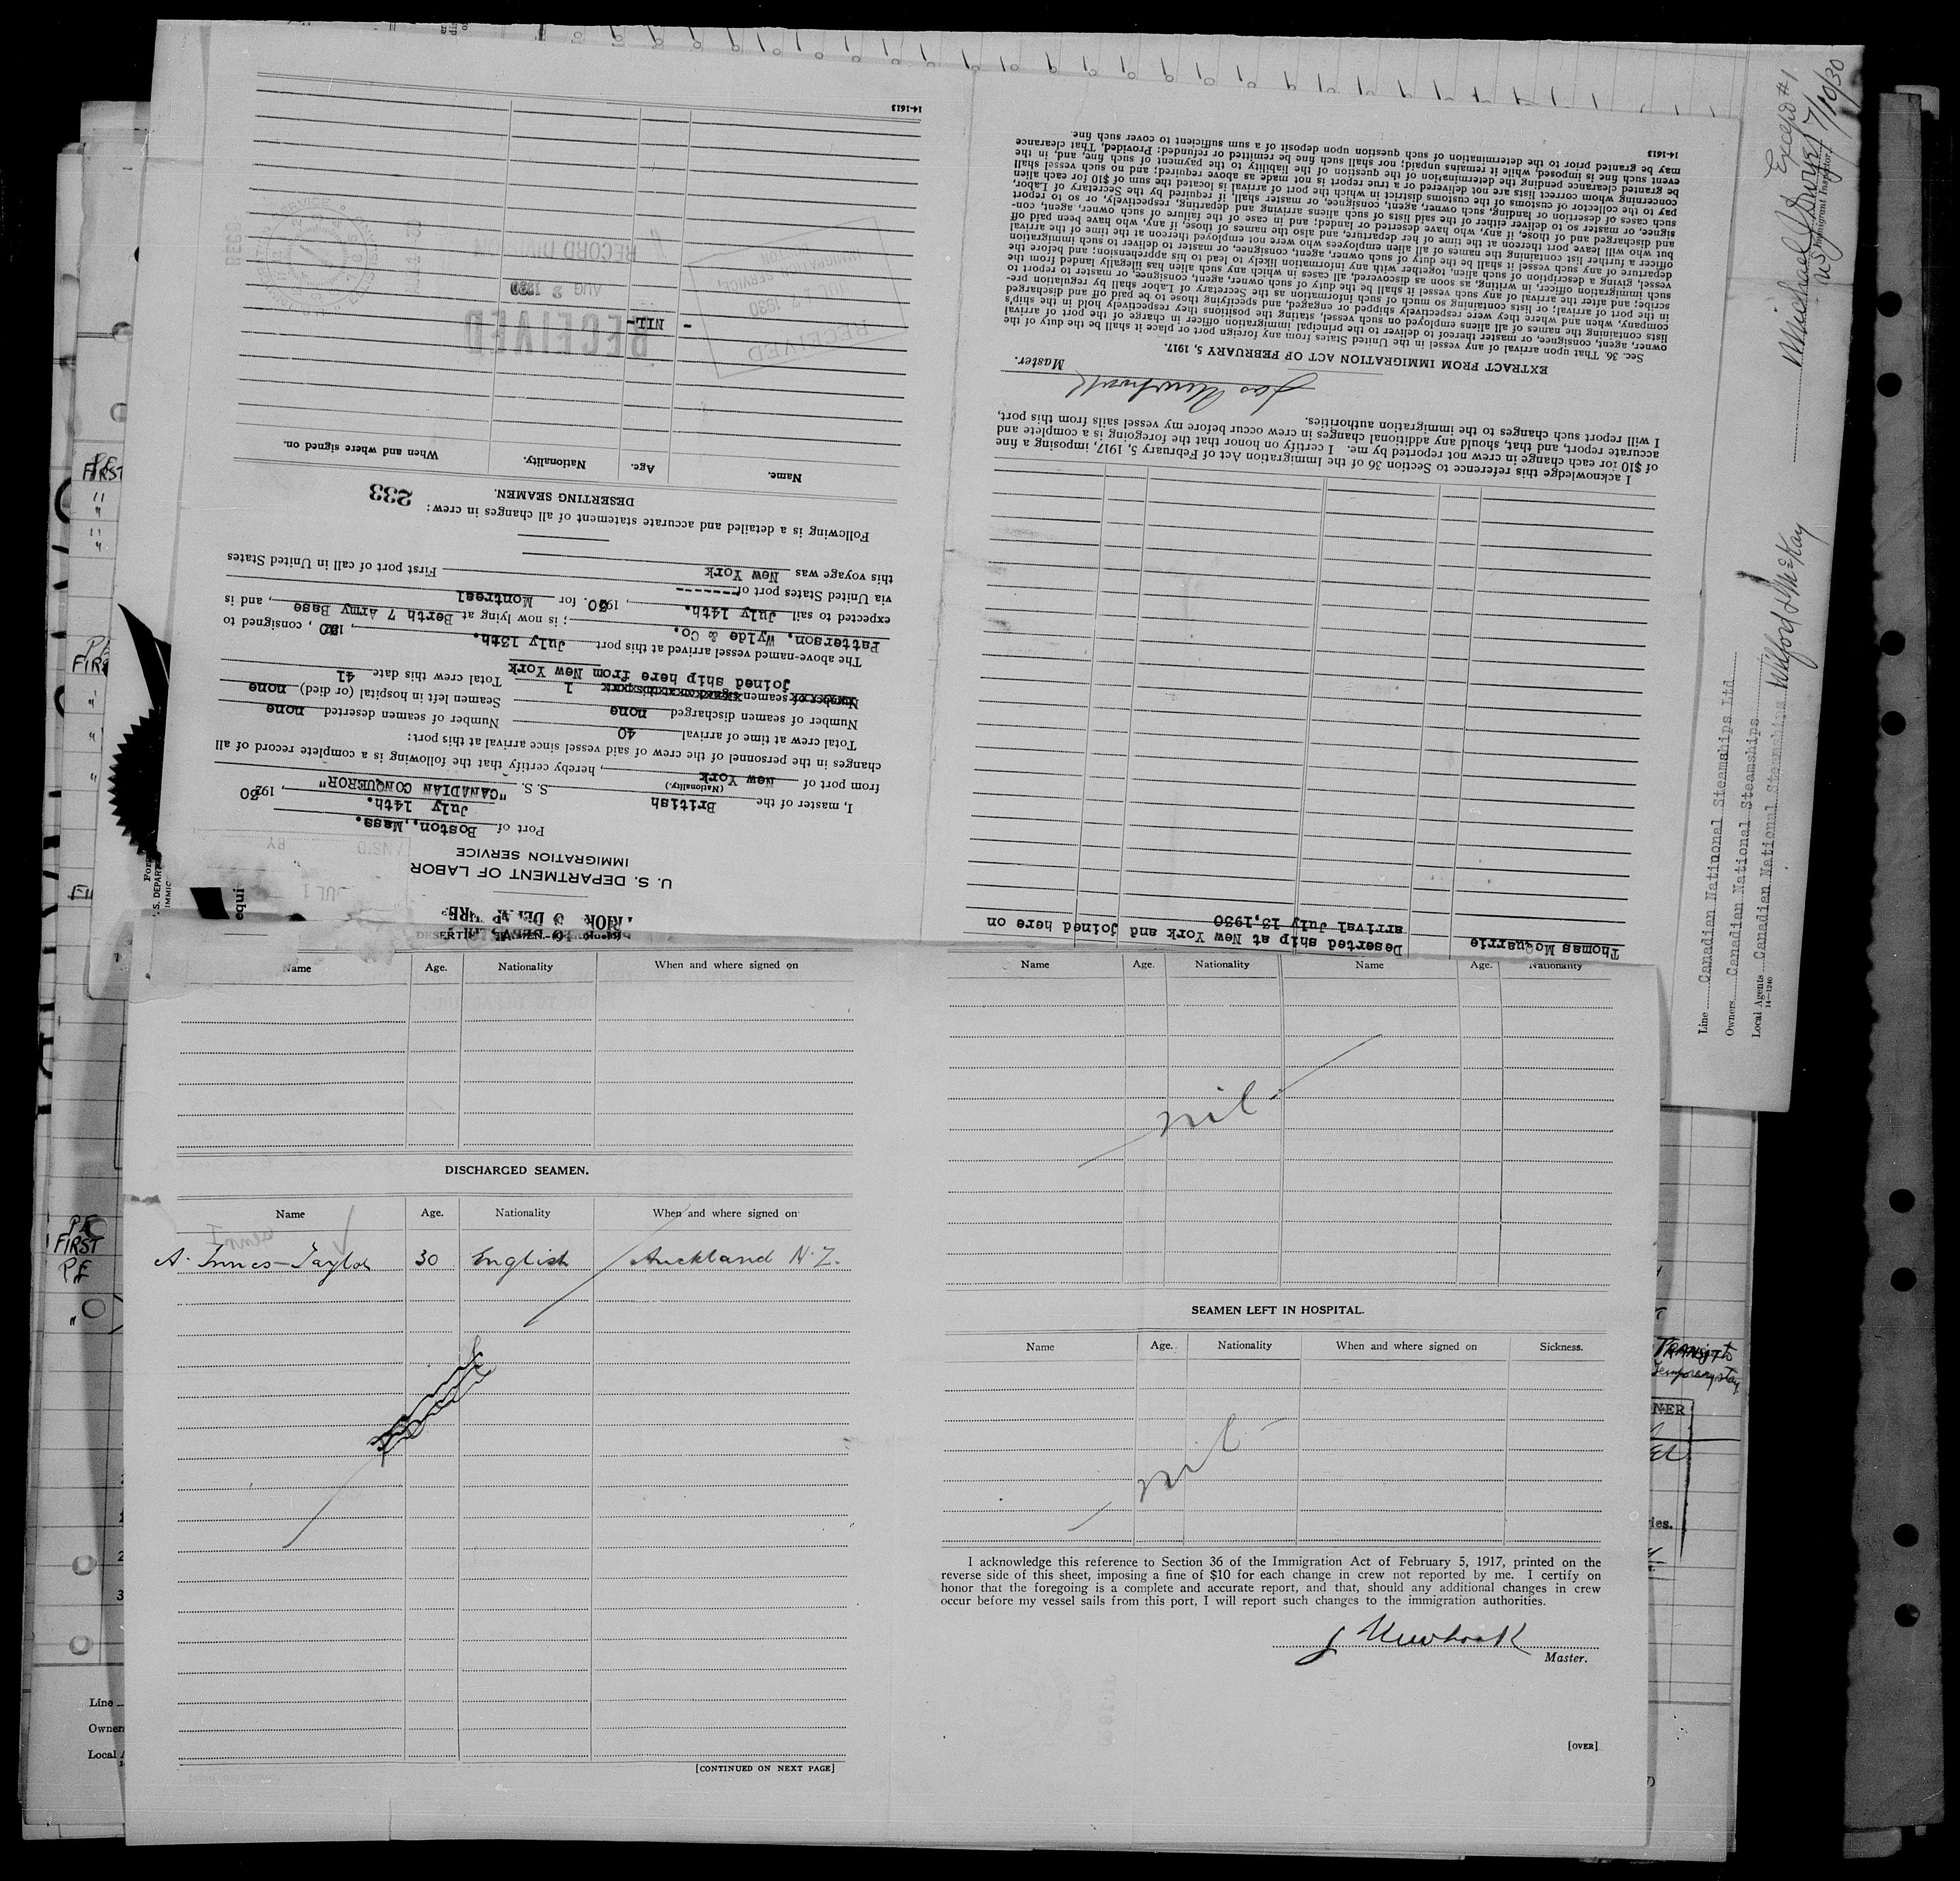 RIOR TO DEPARTURE
U. S. DEPARTMENT OF LABOR
IMMIGRATION SERVICE
Port of Boston, Mass.
July 14th. , 1930
I, master of the British S. S. "CANADIAN CONQUEROR"
(Nationality.)
from port of New York , hereby certify that the following is a complete record of all
changes in the personnel of the crew of said vessel since arrival at this port:
Total crew at time of arrival 40 Number of seamen deserted none
Number of seamen discharged none Seamen left in hospital (or died) none
Number of seamen signed on at this port 1 Total crew this date 41
joined ship here from New York
The above-named vessel arrived at this port July 13th. , 1930 , consigned to
Patterson, Wylde & Co. ; is now lying at Berth 7 Army Base , and is
expected to sail July 14th. , 1930. for Montreal
via United States port of --------
this voyage was New York First port of call in United States
Following is a detailed and accurate statement of all changes in crew:
DESERTING SEAMEN.
233
Name. Age. Nationality. When and where signed on.
- NIL -
RECEIVED
AUG 2 1930
RECORD DIVISION
RECEIVED
1930
IMMIGRATION SERVICE
14-1613
Thomas McQuarrie Deserted ship at New York and joined here on
arrival July 13,1930
I acknowledge this reference to Section 36 of the Immigration Act of February 5, 1917, imposing a fine
of $10 for each change in crew not reported by me. I certify on honor that the foregoing is a complete and
accurate report, and that, should any additional changes in crew occur before my vessel sails from this port,
I will report such changes to the immigration authorities.
Jas Newhook
Master.
EXTRACT FROM IMMIGRATION ACT OF FEBRUARY 5, 1917.
Sec. 36. That upon arrival of any vessel in the United States from any foreign port or place it shall be the duty of the
owner, agent, consignee, or master thereof to deliver to the principal immigration officer in charge of the port of arrival
lists containing the names of all aliens employed on such vessel, stating the positions they respectively hold in the ship's
company, when and where they were respectively shipped or engaged, and specifying those to be paid off and discharged
in the port of arrival; or lists containing so much of such information as the Secretary of Labor shall by regulation pre-
scribe; and after the arrival of any such vessel it shall be the duty of such owner, agent, consignee, or master to report to
such immigration officer, in writing, as soon as discovered, all cases in which any such alien has illegally landed from the
vessel, giving a description of such alien, together with any information likely to lead to his apprehension; and before the
departure of any such vessel it shall be the duty of such owner, agent, consignee, or master to deliver to such immigration
officer a further list containing the names of all alien employees who were not employed thereon at the time of the arrival
but who will leave port thereon at the time of her departure, and also the names of those, if any, who have been paid off
and discharged and of those, if any, who have deserted or landed; and in case of the failure of such owner, agent, con-
signee, or master so to deliver either of the said lists of such aliens arriving and departing, respectively, or so to report
such cases of desertion or landing, such owner, agent, consignee, or master shall, if required by the Secretary of Labor,
pay to the collector of customs of the customs district in which the port of arrival is located the sum of $10 for each alien
concerning whom correct lists are not delivered or a true report is not made as above required; and no such vessel shall
be granted clearance pending the determination of the question of the liability to the payment of such fine, and, in the
event such fine is imposed, while it remains unpaid; nor shall such fine be remitted or refunded: Provided, That clearance
may be granted prior to the determination of such question upon deposit of a sum sufficient to cover such fine.
14-1613
Except #1
7/10/30
US Immigrant Inspector.
Line Canadian National Steamships Ltd
Owners Canadian National Steamships
Local Agents Canadian National Steamships Wilford & McKay
14-1240
Name Age. Nationality When and where signed on
DISCHARGED SEAMEN.
Name Age. Nationality When and where signed on
A. Innes-Taylor 30 English Auckland N.Z.
[CONTINUED ON NEXT PAGE]
Name Age. Nationality Name Age. Nationality
nil
SEAMEN LEFT IN HOSPITAL.
Name Age. Nationality When and where signed on Sickness.
nil
I acknowledge this reference to Section 36 of the Immigration Act of February 5, 1917, printed on the
reverse side of this sheet, imposing a fine of $10 for each change in crew not reported by me. I certify on
honor that the foregoing is a complete and accurate report, and that, should any additional changes in crew
occur before my vessel sails from this port, I will report such changes to the immigration authorities.
J Newhook
Master.
[OVER]
FIRST
FIRST
PE
Line
Local
TRANSIT
Temporary stay